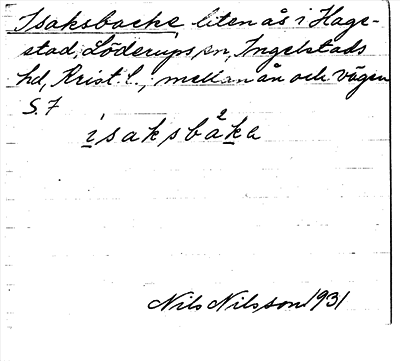 Isaksbacke, liten ås i Hage-
stad, Löderups sn, Ingelstads
hd, Krist. l., mellan ån och vägen
S. 7
isaksbåka
2
Nils Nilsson 1931